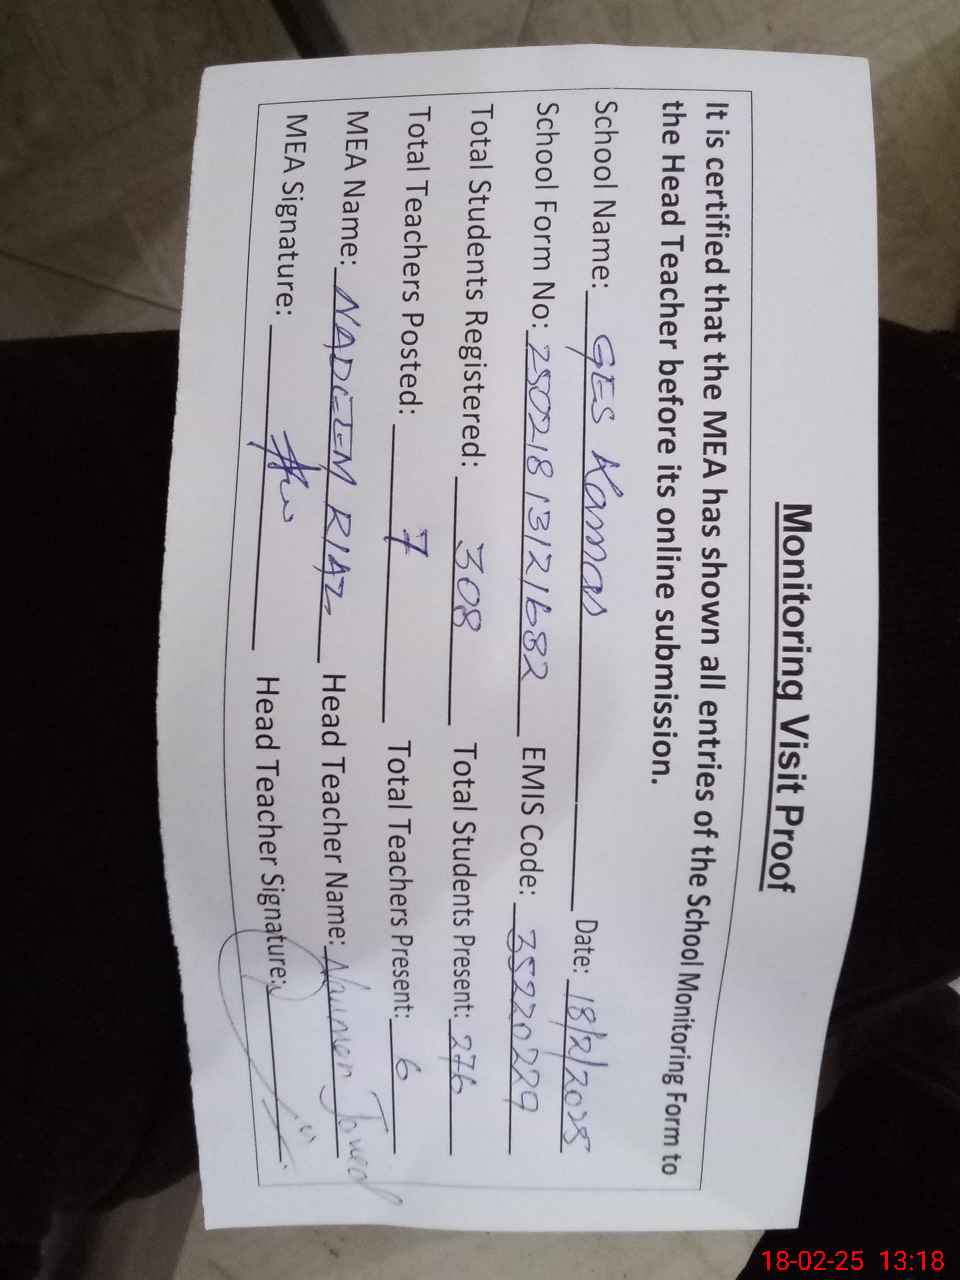 Monitoring Visit Proof
It is certified that the MEA has shown all entries of the School Monitoring Form to
the Head Teacher before its online submission.
School Name: GES Kamas Date: 18/2/2025
School Form No: 25021813121682 EMIS Code: 35220229
Total Students Registered: 308 Total Students Present: 276
Total Teachers Posted: 7 Total Teachers Present: 6
MEA Name: NADEEM RIAZ Head Teacher Name:
MEA Signature: Head Teacher Signature:
18-02-25 13:18